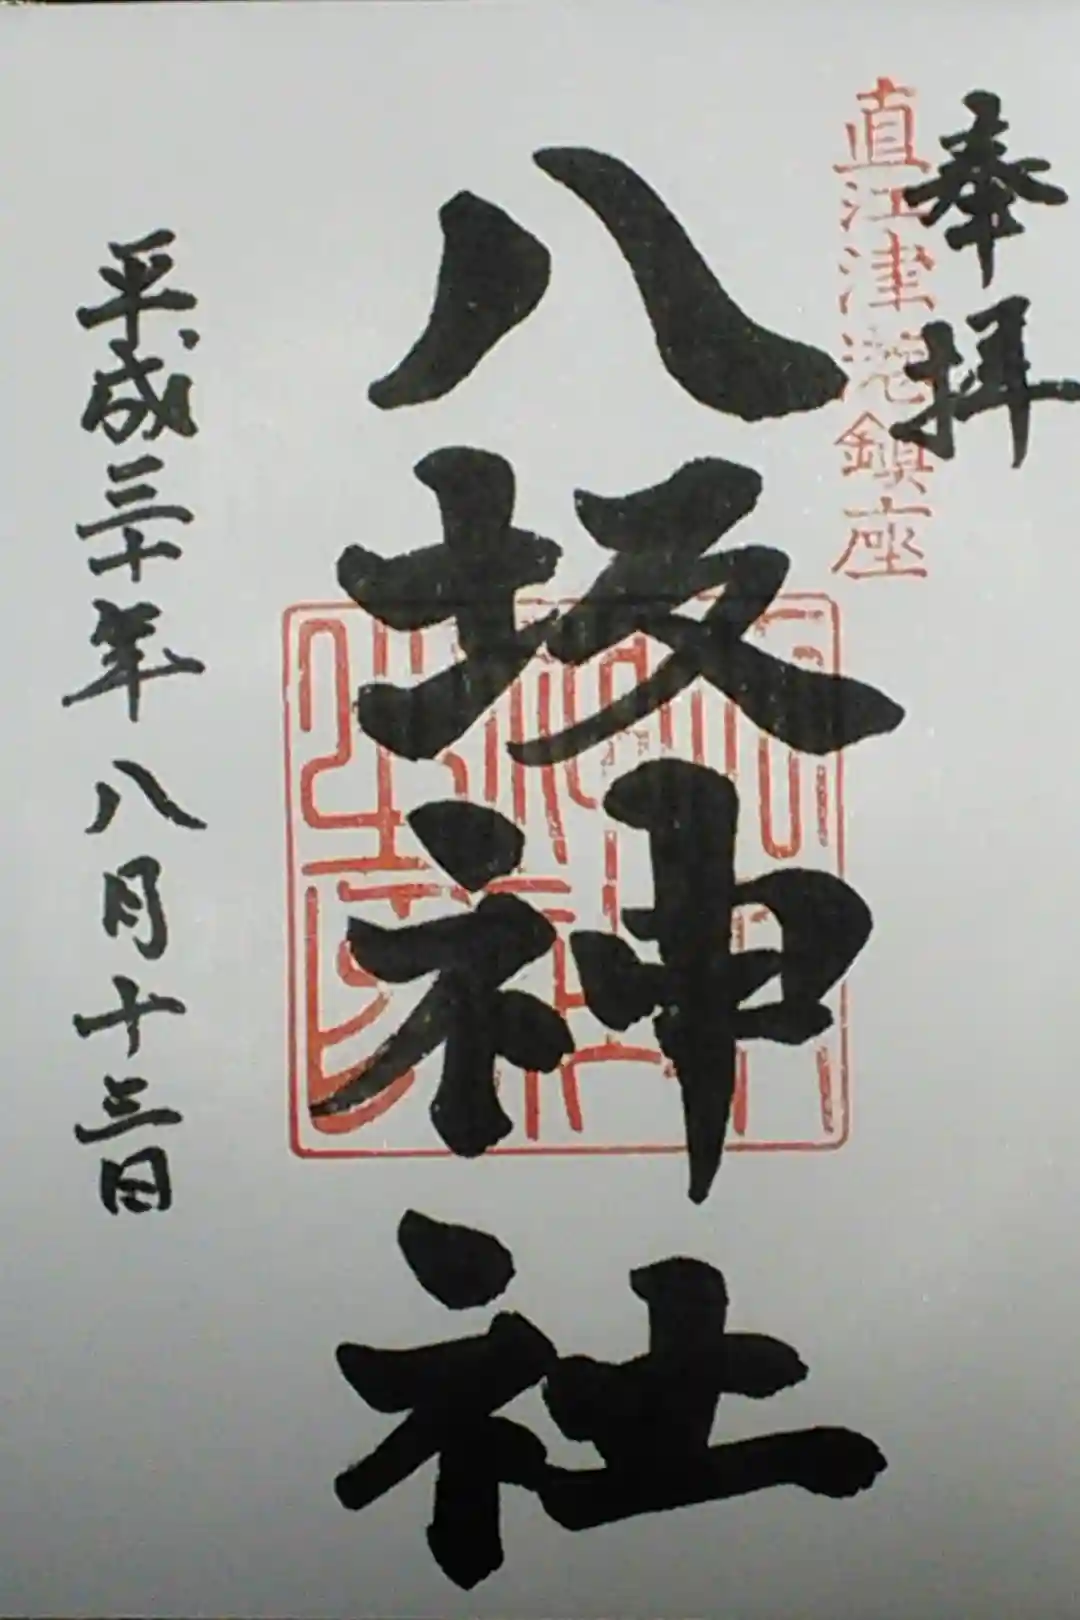 奉拝
直江津港鎮座
八坂神社
平成三十年八月十三日